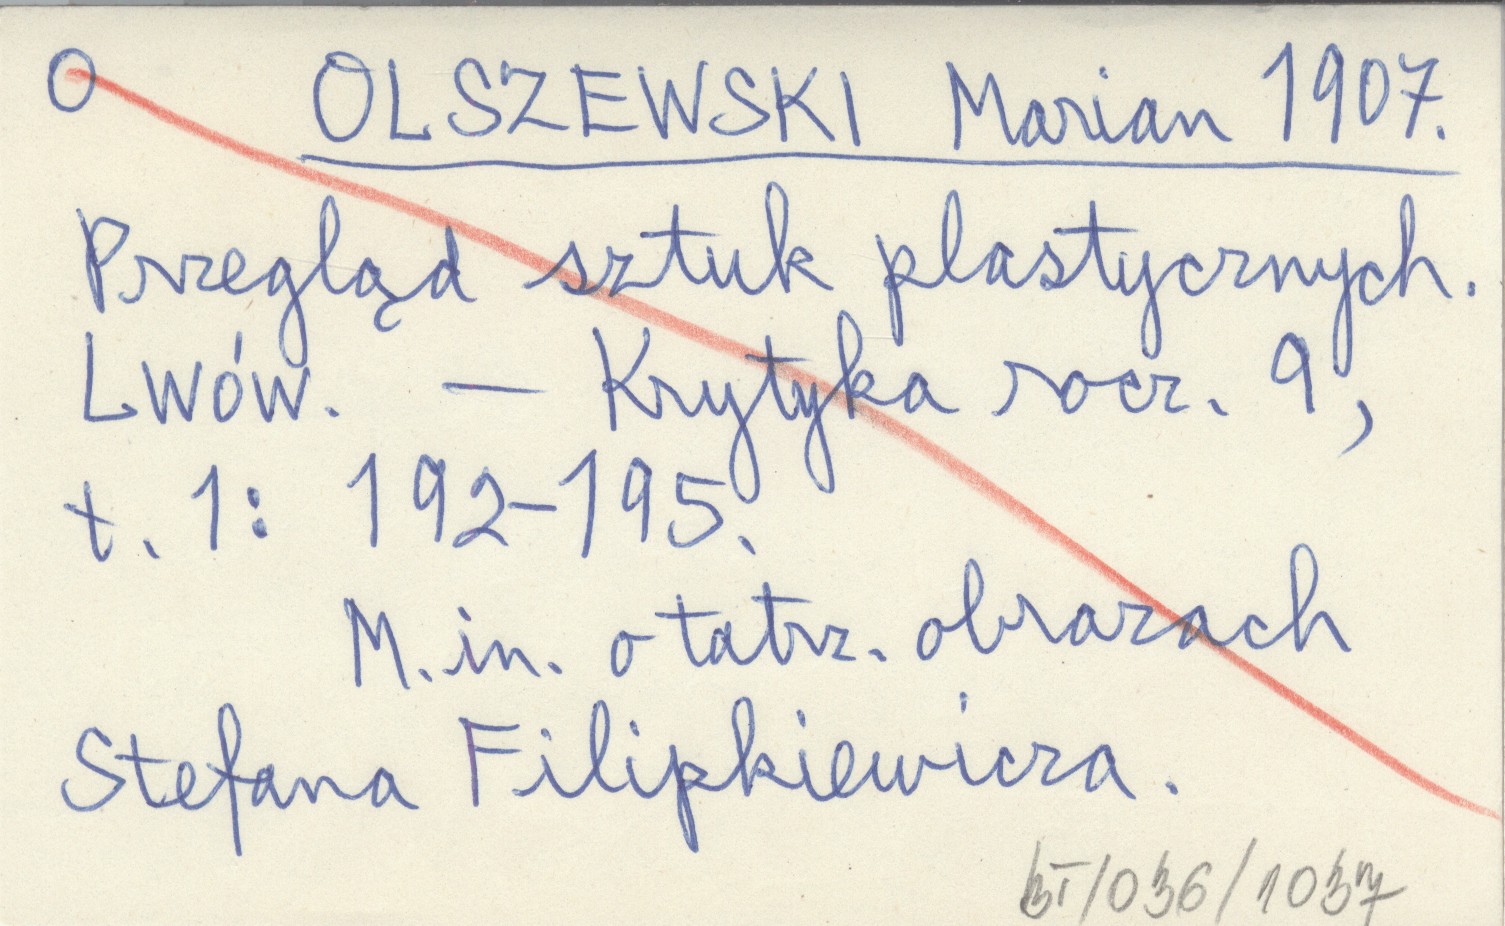 O OLSZEWSKI Marian 1907.
Przegląd sztuk plastycznych.
Lwów. — Krytyka rocz. 9,
t. 1: 192-195.
M. in. o tatrz. obrazach
Stefana Filipkiewicza.
BT/036/1037